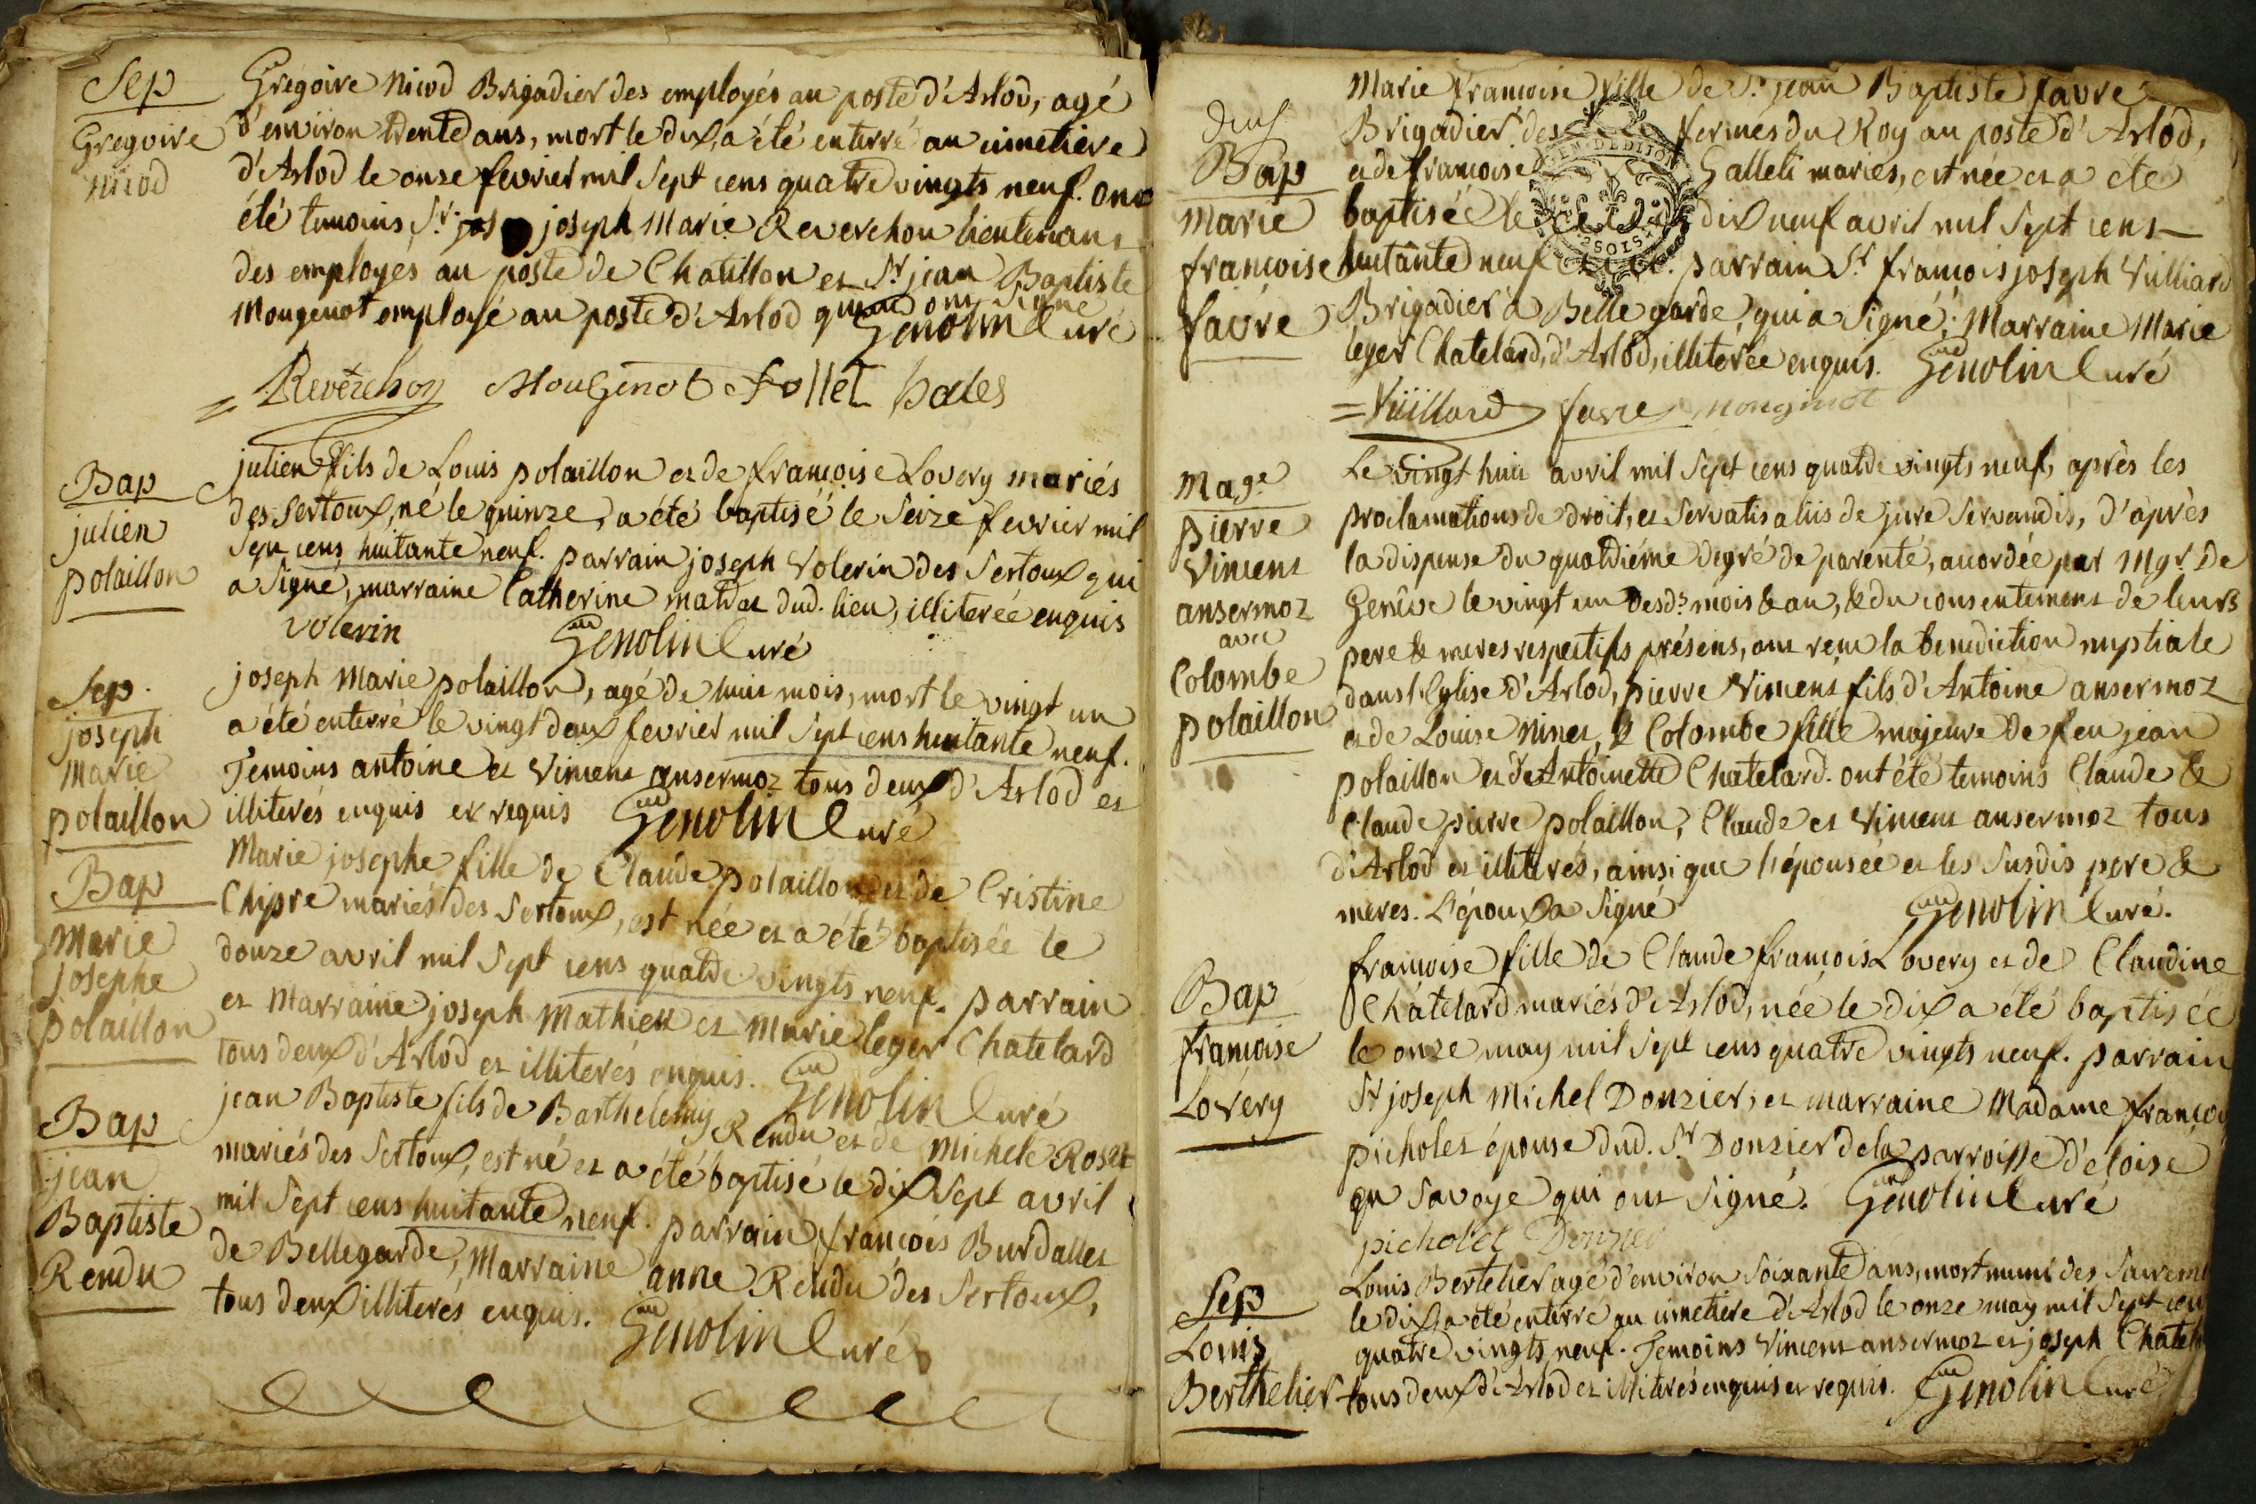 Sep
Gregoire
nicod
Gregoire nicod Brigadier des employés au poste d'Arlod, agé
d'environ trente ans, mort le dix, a été enterré au cimetiere
d'Arlod le onze fevrier mil sept cens quatre vingts neuf. ont
été temoins, Sr. joseph Marie Reverchon lieutenant
des employes au poste de Chatillon et Sr jean Baptiste
Mougenot employé au poste d'Arlod qui ont signé
Genolin Curé
= Reverchon Mougenot follet
Bap
julien
polaillon
julien fils de Louis polaillon et de francoise Lovery mariés
des Sertoux, né le quinze, a été baptisé le seize fevrier mil
sept cens huitante neuf. parrain joseph Volerin des Sertoux qui
a signé, marraine Catherine matraz dud. lieu, illiterée enquis
volerin Genolin Curé
Sep.
joseph
Marie
polaillon
joseph Marie polaillon, agé de huit mois, mort le vingt un
a été enterré le vingt deux fevrier mil sept cens huitante neuf.
Temoins antoine et Vincent ansermoz tous deux d'Arlod et
illiterés enquis et requis Genolin Curé
Bap
Marie
josephe
polaillon
Marie josephe fille de Claude polaillon et de Cristine
Chipre mariés des Sertoux, est née et a été baptisée le
douze avril mil sept cens quatre vingts neuf. parrain
et Marraine joseph Mathieu et Marie leger Chatelard
tous deux d'Arlod et illiterés enquis. Genolin Curé
Bap
jean
Baptiste
Rendu
jean Baptiste fils de Barthelemy Rendu et de Michele Roset
mariés des Sertoux, est né et a été baptisé le dix sept avril
mil sept cens huitante neuf. parrain françois Burdallet
de Bellegarde, Marraine anne Rendu des Sertoux,
tous deux illiterés enquis. Genolin Curé
Bap
Marie
francoise
favre
Marie francoise fille de Sr. jean Baptiste favre
Brigadier des fermes du Roy au poste d'Arlod,
et de francoise Galleti mariés, est née et a été
baptisée le dix neuf avril mil sept cens
huitante neuf. parrain Sr françois joseph Vulliard
Brigadier a Belle garde, qui a signé; Marraine Marie
leger Chatelard, d'Arlod, illiterée enquis. Genolin Curé
= Vüillard favre mougenot
Mage
pierre
Vincent
ansermoz
avec
Colombe
polaillon
Le vingt huit avril mil sept cens quatre vingts neuf, après les
proclamations de droit, et servatis aliis de jure servandis, d'après
la dispense du quatriéme degré de parenté, accordée par Mgr. De
Genêve le vingt un desds. mois & an, & du consentement de leurs
pere & meres respectifs présens, ont recu la benediction nuptiale
dans l'Eglise d'Arlod, pierre Vincent fils d'Antoine ansermoz
et de Louise Ninet, & Colombe fille majeure de feu jean
polaillon et de Antoinette Chatelard. ont été temoins Claude &
Claude pierre polaillon, Claude et Vincent ansermoz tous
d'Arlod et illiterés, ainsi que l'épousée et les susdis pere &
meres. L'époux a signé Genolin Curé.
Bap
francoise
Lovery
francoise fille de Claude françois Lovery et de Claudine
Chatelard mariés d'Arlod, née le dix a été baptisée
le onze may mil sept cens quatre vingts neuf. parrain
Sr joseph Michel Donzier, et marraine Madame
picholet épouse dud. Sr Donzier de la parroisse d'éloise
en savoye qui ont signé. Genolin Curé
picholet Donzier
Sep
Louis
Berthelier
Louis Bertelier agé d'environ soixante ans, mort muni des
le dix, a été enterré au cimetiere d'Arlod le onze may mil sept
quatre vingts neuf. Temoins Vincent ansermoz et joseph
tous deux d'Arlod et illiterés enquis et requis. Genolin Curé